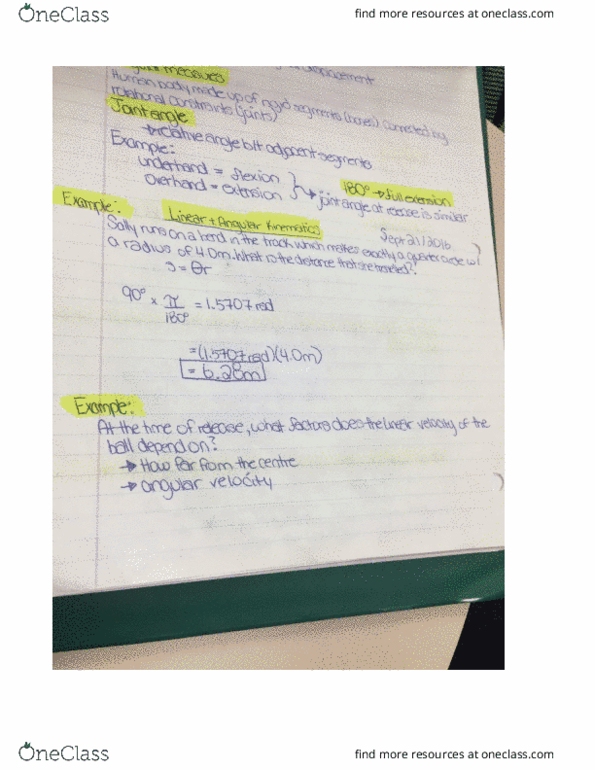 OneClass
find more resources at oneclass.com
measures
Human body made up of rigid segments (bones) connected by
rotational constraints (joints)
Joint angle
→ relative angle b/t adjacent segments
Example:
underhand = flexion
overhand = extension
180° → full extension
joint angle at release is similar
Example:
Linear + Angular Kinematics
Sept 21/2016
Sally runs on a bend in the track which makes exactly a quarter circle w/
a radius of 4.0m. What is the distance that she traveled?
s = θr
90° x π/180° = 1.5707 rad
=(1.5707 rad)(4.0m)
= 6.28m
Example:
At the time of release, what factors does the linear velocity of the
ball depend on?
→ How far from the centre
→ angular velocity
OneClass
find more resources at oneclass.com